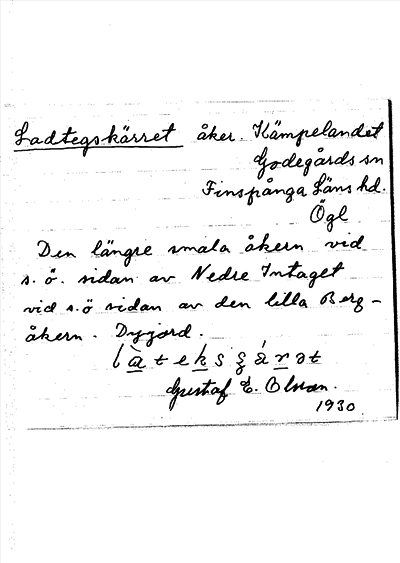 Ladtegskärret åker. Kämpelandet
Godegårds sn
Finspånga Läns hd.
Ögl
Den längre smala åkern vid
s.ö. sidan av Nedre Intaget
vid s.ö sidan av den lilla Berg-
åkern. Dyjord.
Gustaf E. Olsson.
1930